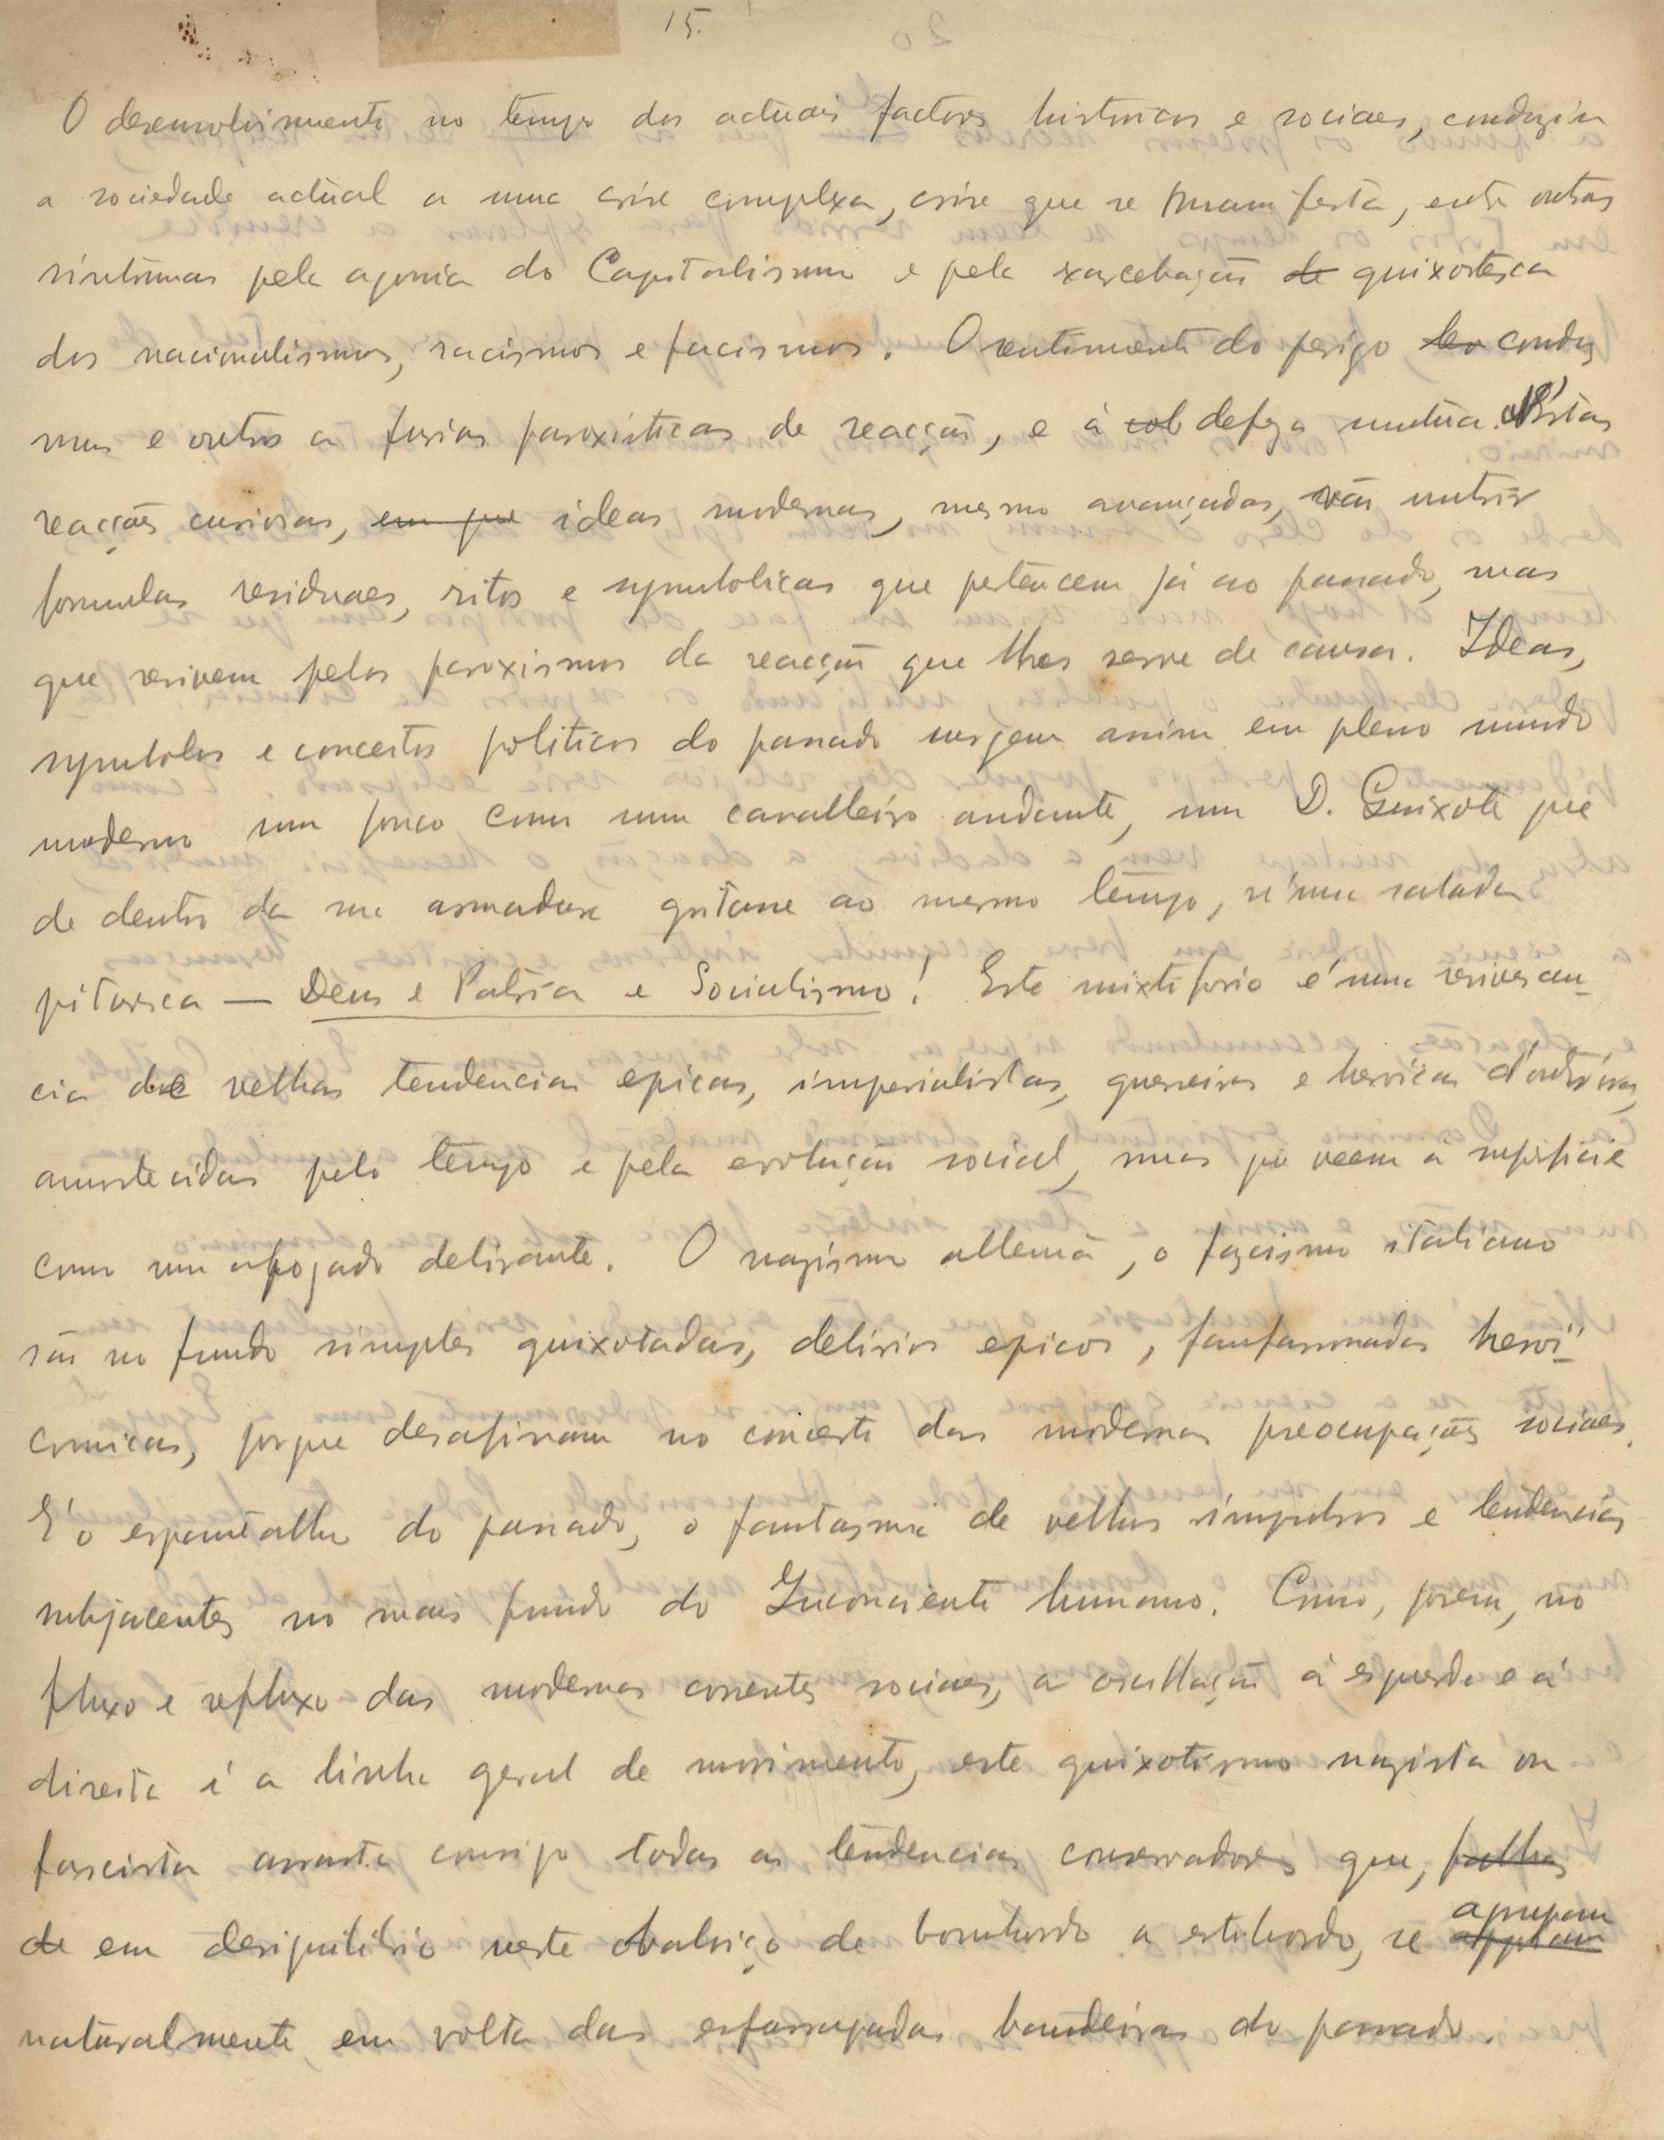 15.
O desenvolvimento no tempo dos actuaes factores historicos e sociaes, conduziu
a sociedade actual a uma crise complexa, crise que se manifesta, entre outros
sintomas pela agonia do Capitalismo e pela exarcebação de quixotesca
dos nacionalismos, racismos e facismos. O sentimento do perigo conduz
uns e outros a furias paroxisticas de reacção, e á sob defeza mutua. N'estas
reacções curiosas, em que ideas modernas, mesmo avançadas, vão nutrir
formulas residuaes, ritos e symbolicas que pertencem já ao passado, mas
que revivem pelos paroxismos da reacção que lhes serve de causa. Ideas,
symbolos e conceitos politicos do passado surgem assim em pleno mundo
moderno um pouco como um cavalleiro andante, um D. Quixote que
de dentro da sua armadura gritasse ao mesmo tempo, n'uma salada
pitoresca — Deus e Patria e Socialismo! Este mixtiforio é uma revivescen-
cia de velhas tendencias epicas, imperialistas, guerreiras e heroicas d'outróra,
amortecidas pelo tempo e pela evolução social, mas que veem á superficie
como um afogado delirante. O nazismo allemão, o fazismo italiano
são no fundo simples quixotadas, delirios epicos, fanfarronadas heroi-
comicas, porque desafinam no concerto das modernas preocupações sociaes.
E' o espantalho do passado, o fantasma de velhos impulsos e tendencias
subjacentes no mais fundo do Inconsciente humano. Como, porem, no
fluxo e refluxo das modernas correntes sociaes, a oscillação á esquerda e á
direita é a linha geral de movimento, este quixotismo nazista ou
fascista arrasta comsigo todas as tendencias conservadores que, falhas
de em desiquilibrio neste baloiço de bombordo a estibordo, se agrupam
naturalmente em volta das esfarrapadas bandeiras do passado.